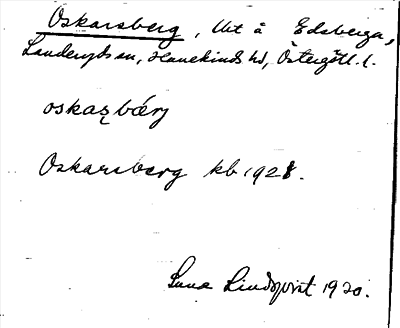 Oskarsberg, Utt å Edsberga,
Landeryds sn, Hanekinds hd, Östergötl. l.
oskaʂbærj
Oskarsberg kb 1928.
Suna Lindqvist 1920.